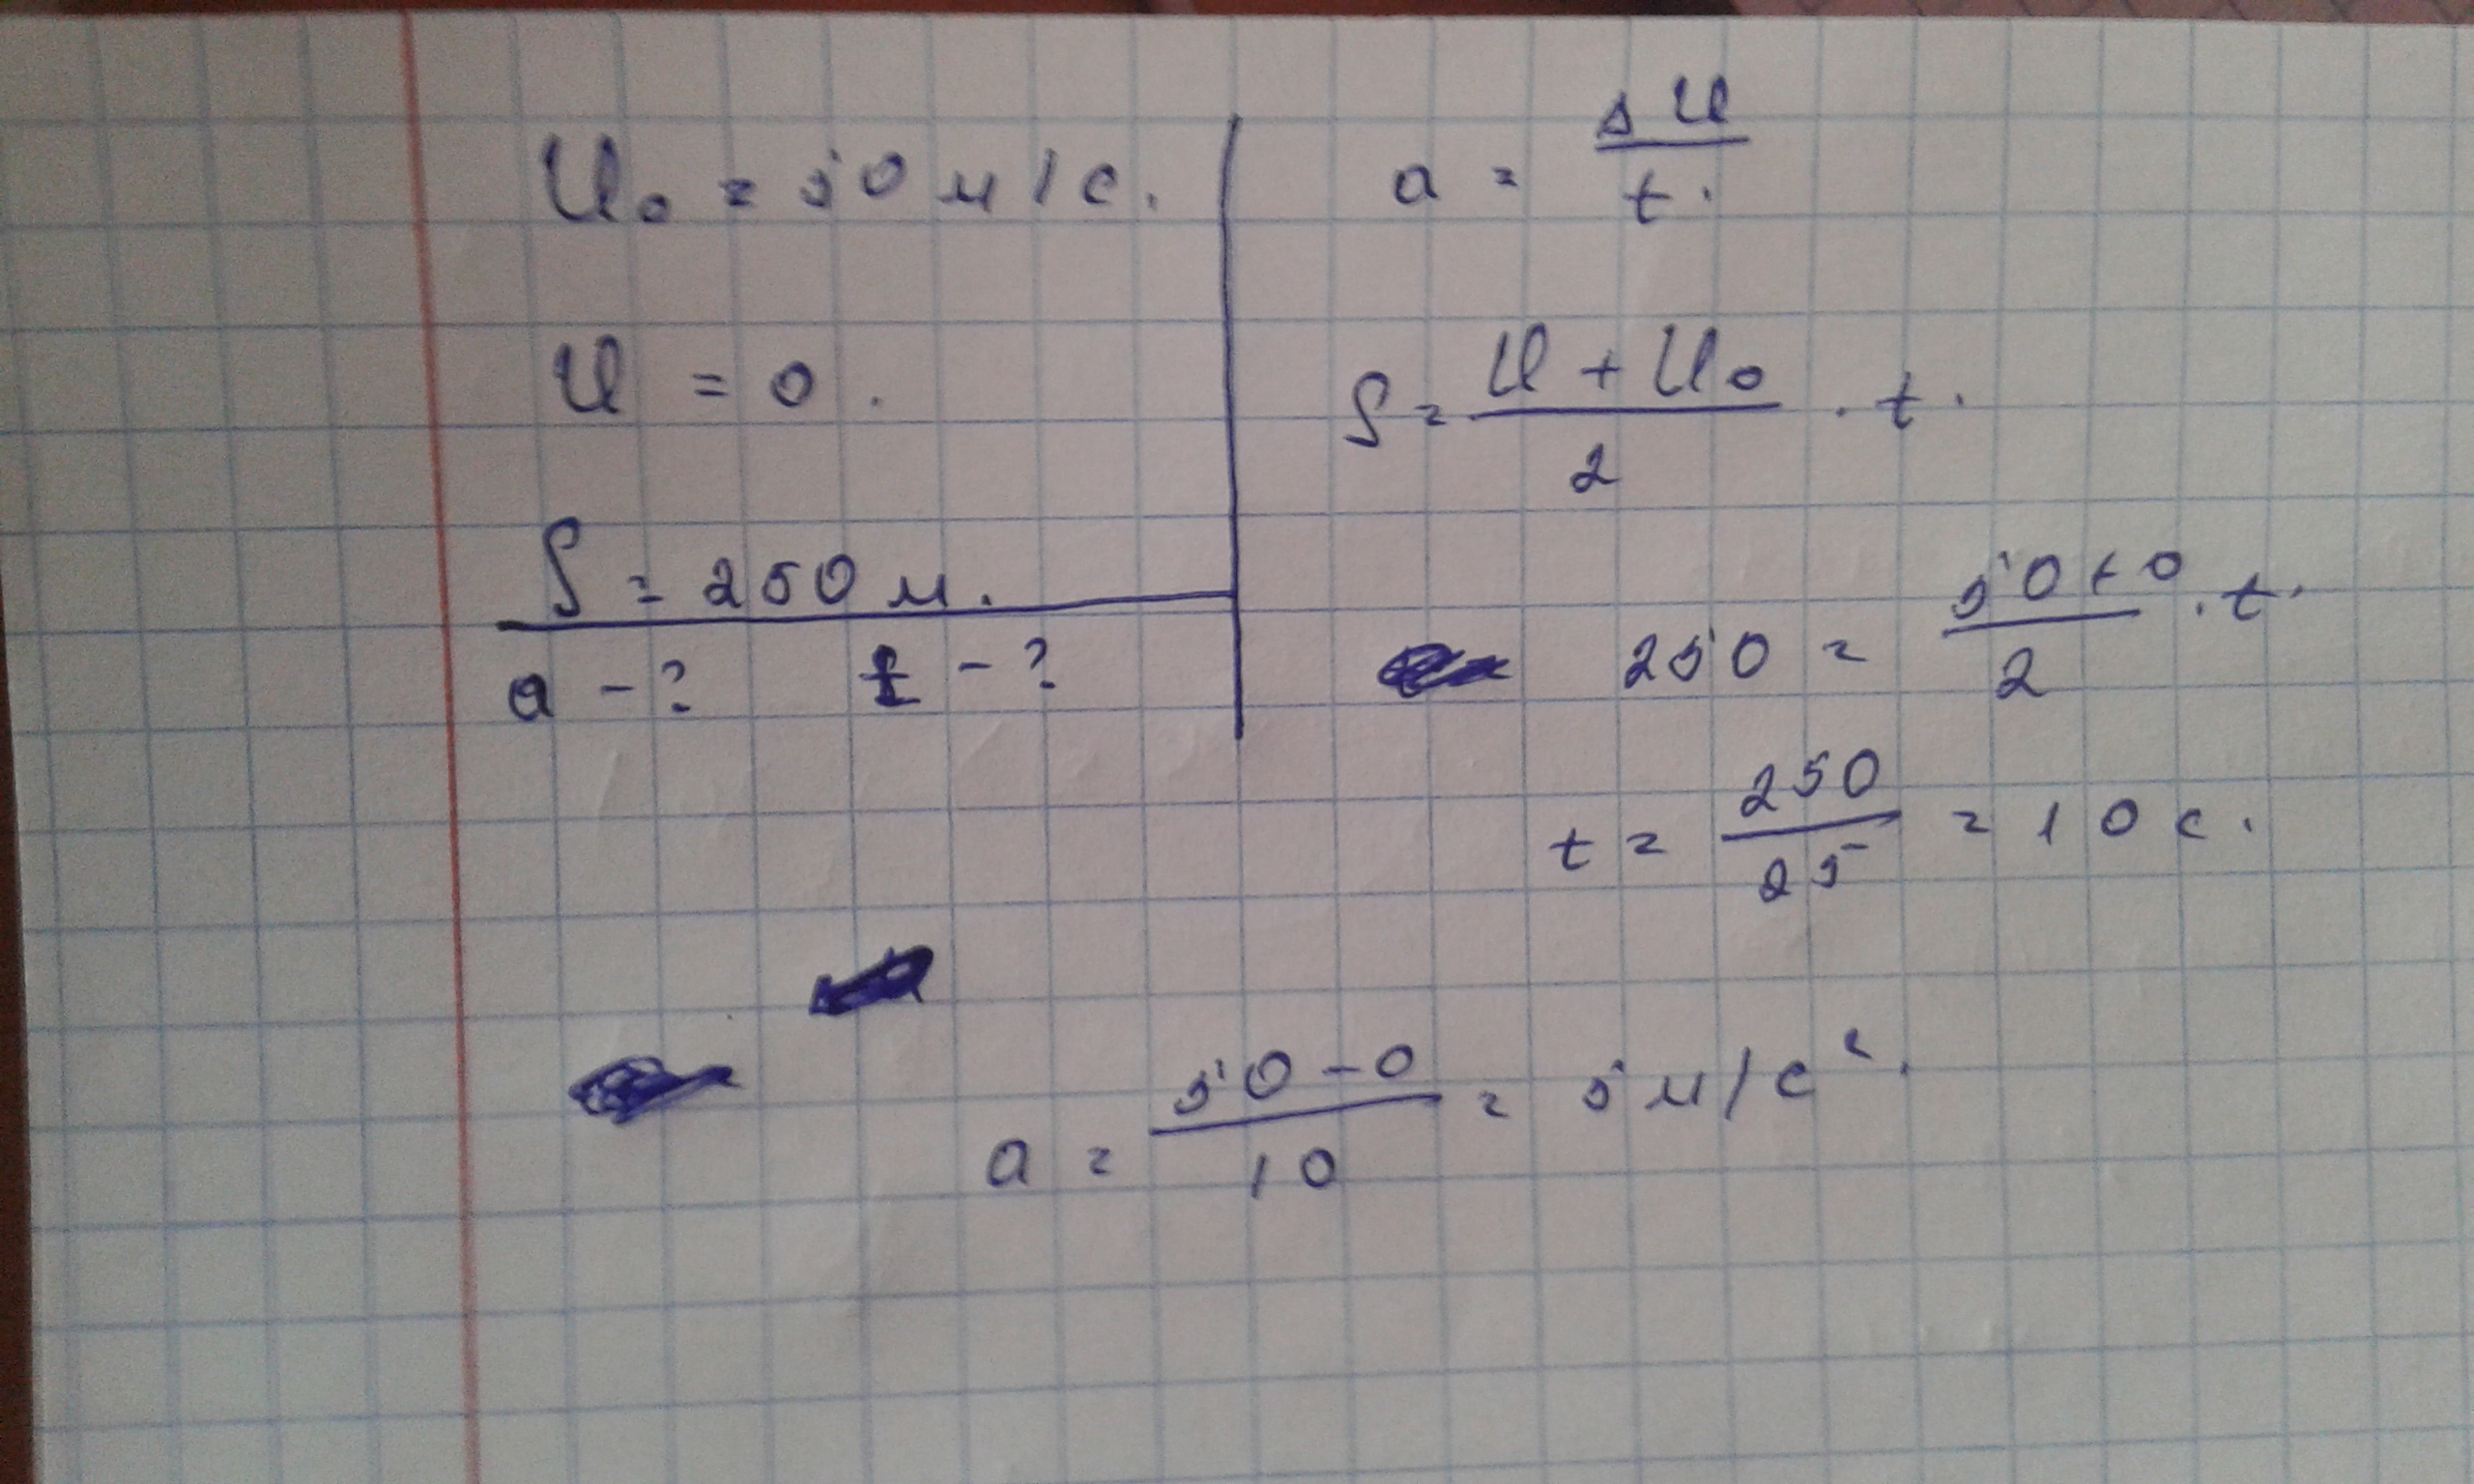 U₀ = 50 м/с.
U = 0.
S = 250 м.
a - ? t - ?
a = ΔU / t.
S = (U + U₀) / 2 · t.
250 = (50 + 0) / 2 · t.
t = 250 / 25 = 10 с.
a = (50 - 0) / 10 = 5 м/с².